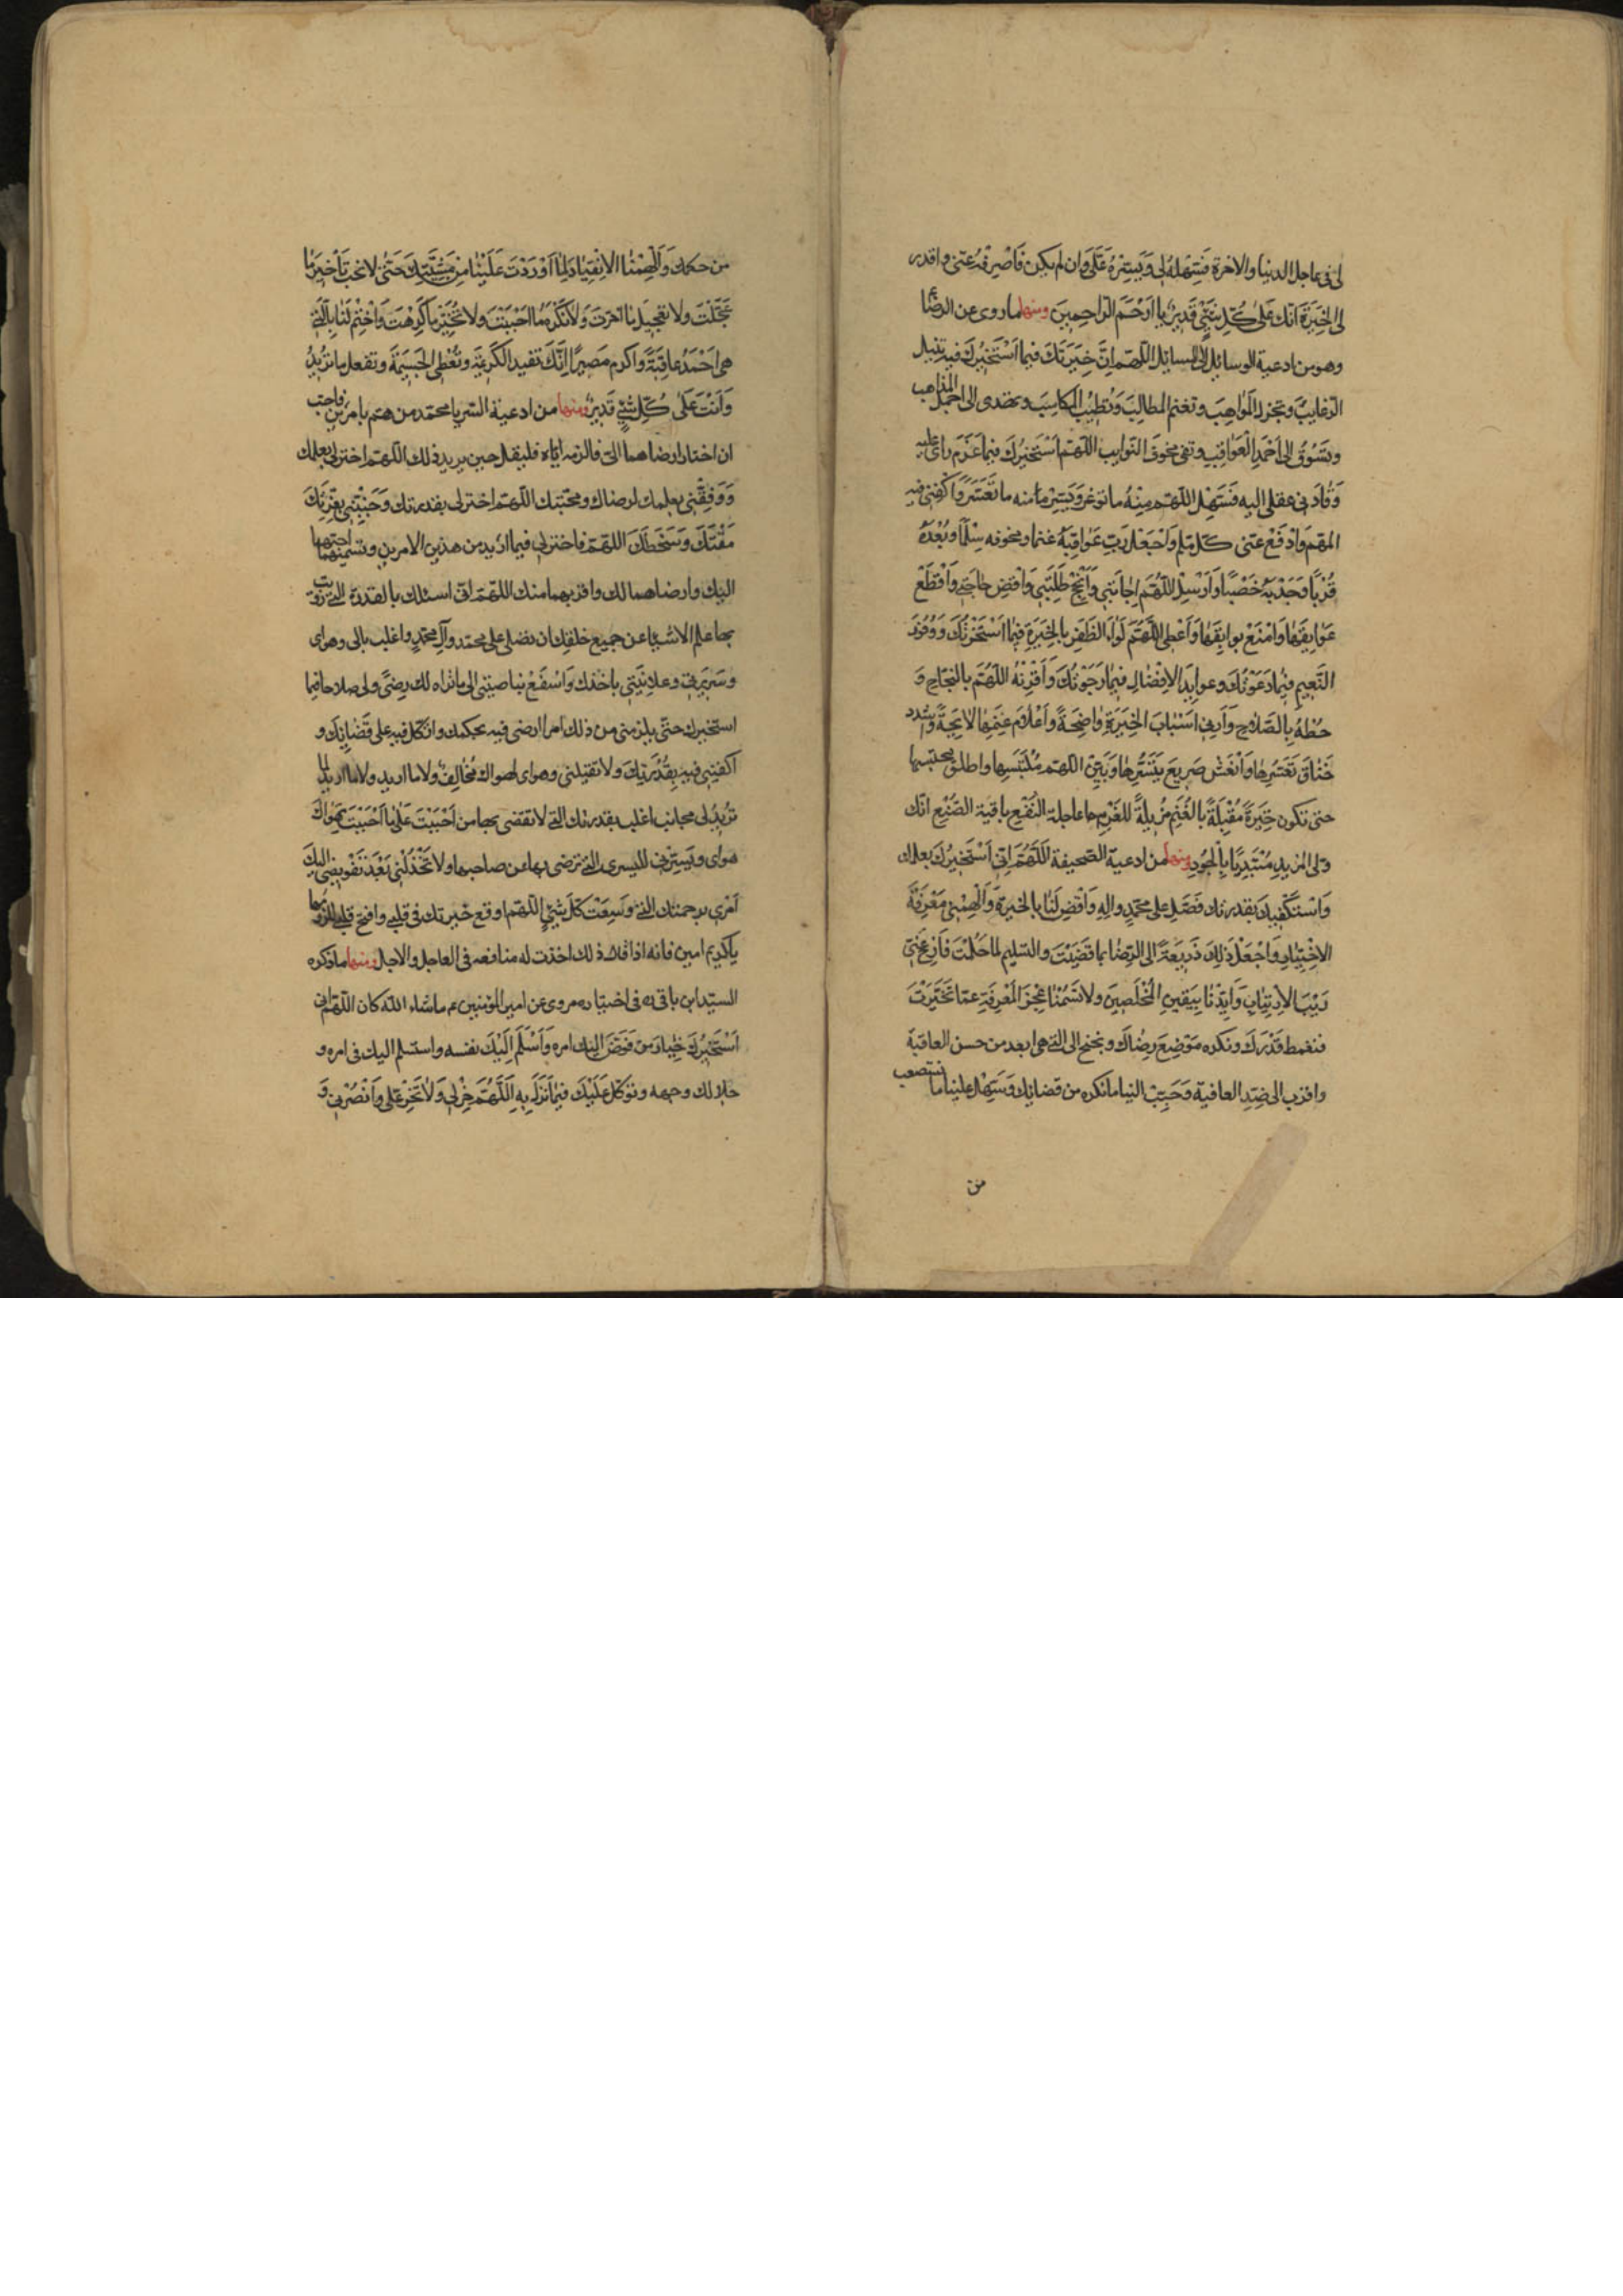 لى فى عاجل الدنيا والاخرة فَسَهِّلْهُ لى وَيَسِّرْهُ عَلَىَّ وَان لم يكن فَاصْرِفْهُ عنى واقدر
لى الخِيَرَةَ انّك عَلى كُلِّ شَىْءٍ قَديرٌ يا اَرْحَمَ الرّاحِمينَ ومنها ما روى عن الرضا ع
وهو من ادعية الوسائل الى المسائل اللّهمّ اِنَّ خِيَرَتَكَ فيما اَسْتَخيرُكَ فيه تنيل
الرّغايبَ وتجزل المَواهِبَ وتغنم المطالِبَ وَتُطَيِّبُ المَكاسِبَ وتهدى الى اجمل المذاهب
وَتَسُوقُ الى اَحْمَدِ الْعَواقِبِ وتقى مخوفَ النّوايب اللّهمّ اَسْتَخيرُكَ فيما عَزَمَ راى عليه
وَقادَنى عقلى اليه فَسَهِّلِ اللّهمّ مِنْهُ ما توعّر وَيَسِّرْ مِنه ما تَعَسَّرَ وَاكْفِنى فيه
المهمّ وَادْفَعْ عنّى كلّ ملمّ وَاجْعَلْ رَبِّ عَواقِبَهُ غنما ومخوفه سِلْماً وَبُعْدَهُ
قُرْباً وَجَدْبَهُ خَصْباً وَاَرْسِلِ اللّهُمَّ اِجابَتى وَاَنْجِحْ طَلِبَتى وَاقضِ حاجَتى وَاقْطَعْ
عَوايِقَها وَامْنَعْ بوايِقَها وَاَعْطِنى اللّهُمَّ لِواءَ الظَفَرِ بالخِيَرَةِ فيما اسْتَخَرْتُكَ وَوُفُورَ
النَّعيمِ فيما دَعَوْتُكَ وعوايِدَ الاِفْضالِ فيما رَجَوْتُكَ وَاَقْرِنْهُ اللّهُمَّ بالنجاحِ وَ
حُطْهُ بِالصَّلاحِ وَاَرِنى اَسْبابَ الخِيَرَةِ واضِحَةً وَاَعْلامَ غُنْمِها لايِحَةً وَاشدد
خَناقَ تَعَسُّرِها وَانْعَشْ صَريعَ تَيَسُّرِها وَبَيِّنِ اللهمّ مُلْتَبَسِها واطلق محتبسها
حتى تكون خِيَرَةً مُقْبِلَةً بالغُنْمِ مُزيلَةً للغُرْمِ عاجلة النَّفْعِ باقية الصُّنْعِ انّك
ولى المزيدِ مُبْتَدِئاً بِالْجُودِ ومنها من ادعية الصّحيفة اَللّهُمَّ اِنّى اَسْتَخيرُكَ بعلمك
وَاستكفيك بقدرتك فَصَلِّ على محمّدٍ وآلِهِ وَاقْضِ لَنا بالخيرةِ وَاَلْهِمْنى مَعْرِفَةَ
الاِخْتِيارِ وَاجْعَلْ ذلِكَ ذَريعَةً الى الرِّضا بما قضَيْتَ والتّسليم لما حَكَمْتَ فَاَزِحْ عَنّى
رَيْبَ الاِرتيابِ وَاَيِّدْنا بِيَقينِ المُخْلَصينَ ولا تَسُمْنا عَجْزَ المَعْرِفَةِ عمّا تَخَيَّرْتَ
فنغمط قَدْرَكَ ونكره مَوْضِعَ رِضاكَ ونجنح الى التى هى ابعد من حسن العاقبة
واقرب الى ضِدِّ العافية وَحَبِّبْ الينا ما نكره من قضائك وَسَهِّلْ علينا ما نستصعب
من
من حكمك وَاَلْهِمْنا الاِنْقِيادَ لِما اَوْرَدْتَ عَلَيْنا مِنْ مَشيَّتِكَ حَتّى لا نحبّ تَأخيرَ ما
عَجَّلْتَ ولا تعجيلَ ما اخّرتَ وَلا نَكْرَهَ ما احْبَبْتَ ولا نَتَخَيَّرَ ما كَرِهْتَ وَاخْتِمْ لَنا بِالَّتى
هى اَحْمَدُ عاقبَةً واكرم مَصيراً اِنَّكَ تفيد الكَريمَةَ وتُعْطِى الجَسيمَةَ وتفعل ما تريدُ
وَاَنْتَ عَلى كُلِّ شَىْءٍ قَديرٌ ومنها من ادعية السّر يا محمّد من همّ بامرين فاحبّ
ان اختار ارضاهما الىّ فالزمه ايّاه فليقل حين يريد ذلك اللّهمّ اختر لى بعلمك
وَوَفِّقْنى بعلمك لرضاك ومحبّتك اللّهمّ اختر لى بقدرتك وَجَنِّبْنى بعِزَّتِكَ
مَقْتَكَ وَسَخَطَكَ اللّهمّ فاختر لى فيما اُريد من هذين الامرين وتسمّيهما احبّهما
اليك وارضاهما لك واقربهما منك اللّهمّ انّى اسئلك بالقدرة الّتى زويت
بها علم الاشياء عن جميع خلقك ان تصلّى على محمّد وآل محمّدٍ واغلب بالى وهواى
وسَريرتى وعلانِيَتى باخذك وَاسْفَعْ بناصيتى الى ما تراه لك رِضىً ولى صلاحا فيما
استخيرك حتّى يلزمنى من ذلك امرا ارضى فيه بحكمك واتّكل فيه على قَضائِكَ و
اكتفى فيه بِقُدْرَتِكَ ولا تقلبنى وهواى لهواك مُخالِفٌ ولا ما اريد ولا ما اريد لما
تُريدُ لى مجانب اغلب بقدرتك التى لا تقضى بها من اَحْبَبْتَ عَلى ما اَحْبَبْتَ بهَواكَ
هواى ويَسِّرنى لليسرى الّتى ترضى بها عن صاحبها ولا تَخْذُلْنى بَعْدَ تَفْويضى اليكَ
اَمْرى برحمتك التى وَسِعَتْ كلّ شَىْءٍ اللّهمّ اوقع خيرتك فى قلبى وافتح قلبى للزومها
ياكريم امين فانه اذا قال ذلك اخذت له منافعه فى العاجل والاجل ومنها ما ذكره
السيّد ابن باقى ره فى اختياره مروى عن امير المؤمنين ع ما شاء الله كان اللّهمّ انى
اَسْتَخيرُكَ خِيارَ مَن فَوَّضَ اليك امره وَاَسْلَمَ اِلَيْكَ نفسه واستسلم اليك فى امره و
خلا لك وجهه وتوَكّلَ عَلَيْكَ فيما نَزَلَ بِهِ اَللّهُمَّ خِرْ لى وَلا تَخِرْ عَلَىَّ وَانْصُرْنى وَ